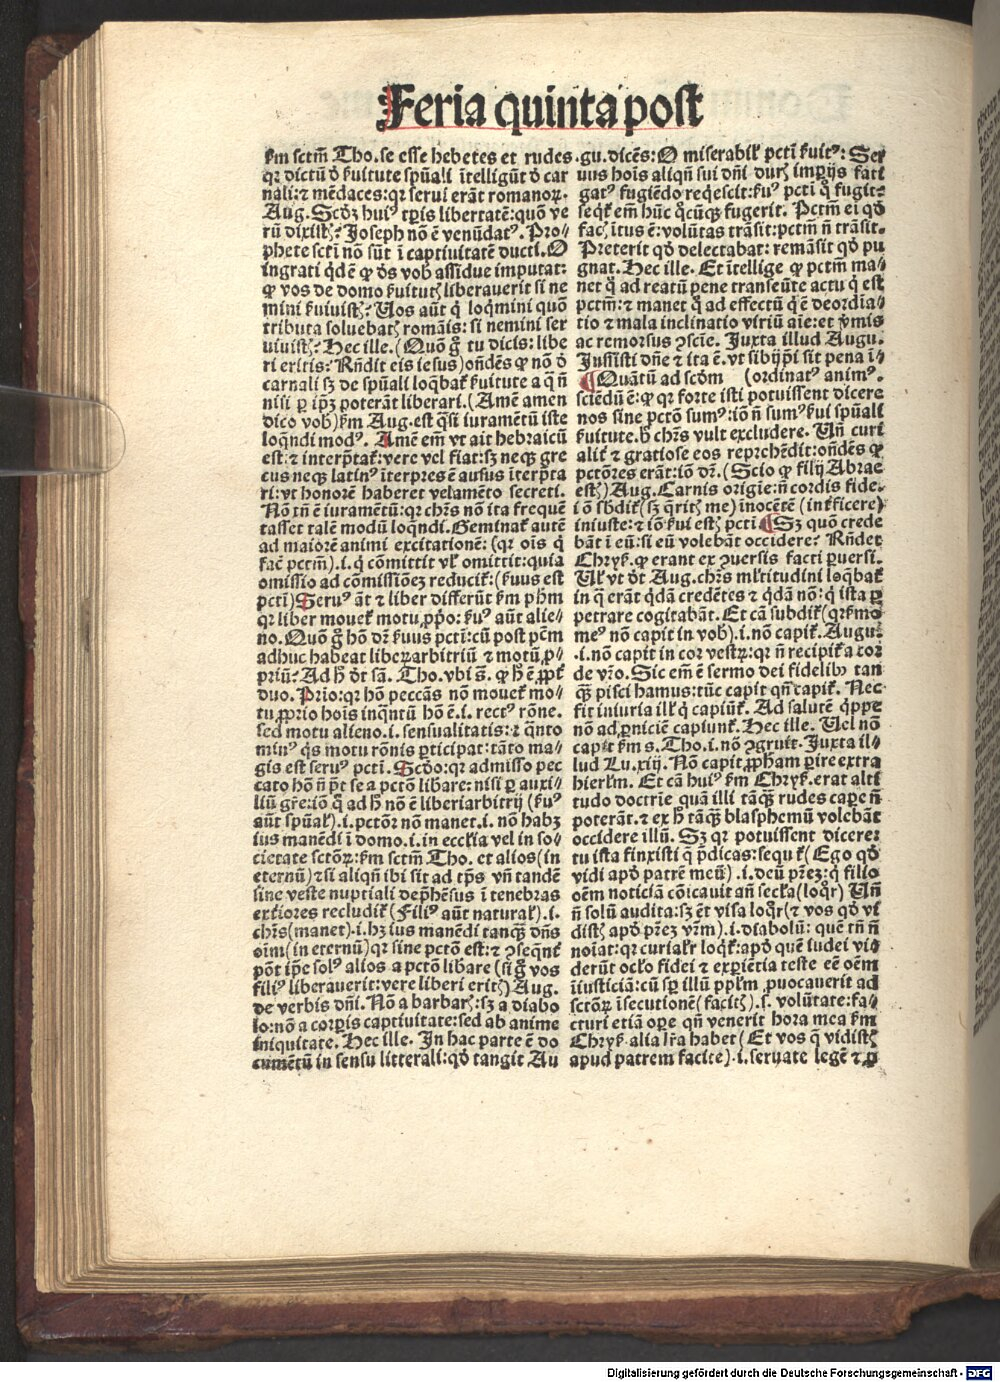 Feria quinta post
k̄m sctm̄ Tho. se esse hebetes et rudes
qꝛ dictū ð ẜuitute spūali ītelligūt ð car
nali: ⁊ mēdaces: qꝛ serui erāt romanoꝝ.
Aug. Scðꝫ huiꝰ tp̄is libertatē: quō ve
rū dixistꝭ? Joseph nō ē venūdatꝰ. Pro⸗
phete sctī nō sūt ī captiuitatē ducti. O
ingrati qd̄ē ꝙ ds̄ vob̄ assidue imputat:
ꝙ vos de domo ẜuitutꝭ liberauerit si ne
mini ẜuiuistꝭ? Uos aūt q̄ loqͥmini quō
tributa soluebatꝭ romāis: si nemini ser
uiuistꝭ? Hec ille. (Quō gͦ tu dicis: libe
ri eritis? Rn̄dit eis iesus) on̄dēs ꝙ nō ð
carnali sꝫ de spūali loqͥbat̉ ẜuitute a q̄ n̄
nisi ꝑ ip̄ꝫ poterāt liberari. (Amē amen
dico vob̄) k̄m Aug. est qͣsi iuramētū iste
loqn̄di modꝰ. Amē em̄ vt ait hebraicū
est: ⁊ interp̄tat̉: vere vel fiat: sꝫ neqꝫ gre
cus neqꝫ latinꝰ īterpres ē ausus īterpta
ri: vt honorē haberet velamēto secreti.
Nō tn̄ ē iuramētū: qꝛ chr̄s nō ita frequē
tasset talē modū loqn̄di. Geminat̉ autē
ad maiorē animi excitationē: (qꝛ oīs q̄
fac̄ pctm̄) .i. q̄ cōmittit vl̉ omittit: quia
omissio ad cōmissiōeꝫ reducit̉: (ẜuus est
pctī) Seruꝰ āt ⁊ liber differūt k̄m ph̄m
qꝛ liber mouet̉ motu ꝓpͦo: ẜuꝰ aūt alie⸗
no. Quō gͦ hō dꝛ̄ ẜuus pctī: cū post pc̄m
adhuc habeat liberꝝarbitriū ⁊ motū ꝓ⸗
priū? Ad h̄ ðt sā. Tho. vbi s̄. ꝙ h̄ ē ꝓpt̉
duo. Prīo: qꝛ hō peccās nō mouet̉ mo⸗
tu ꝓprio hoīs inqͣntū hō ē .i. rectꝰ rōne.
sed motu alieno .i. sensualitatis: ⁊ qͣnto
minꝰ qͥs motu rōnis ꝑticipat: tāto ma⸗
gis est seruꝰ pctī. Scðo: qꝛ admisso pec
cato hō n̄ pt̄ se a pctō libare: nisi ꝑ auxi⸗
liū gr̄e: iō qͣ ad h̄ nō ē liberiarbitrij (ẜuꝰ
aūt spūal̉) .i. pctōr nō manet .i. nō habꝫ
ius manēdi ī domo .i. in ecclīa vel in so⸗
cietate sctōꝝ: k̄m sctm̄ Tho. et alios (in
eternū) ⁊ si aliqn̄ ibi sit ad tp̄s vn̄ tandē
sine veste nuptiali dep̄hēsus ī tenebras
exteriores recludit̉ (Filiꝰ aūt natural̉) .i.
chr̄s (manet) .i. hꝫ ius manēdi tanqꝫ dn̄s
oīm (in eternū) qꝛ sine pctō est: ⁊ ꝯseqn̄t̉
pōt ip̄e solꝰ alios a pctō libare (si gͦ vos
filiꝰ liberauerit: vere liberi eritꝭ) Aug.
de verbis dn̄i. Nō a barbarꝭ: sꝫ a diabo
lo: nō a corpīs captiuitate: sed ab anime
iniquitate. Hec ille. In hac parte ē do
cumētū in sensu litterali: qð tangit Au
gu. dicēs: O miserabil̉ pctī ẜuitꝰ: Ser
uus hoīs aliqn̄ sui dn̄i durꝭ imꝑijs fati
gatꝰ fugiēdo reqͥescit: ẜuꝰ pctī qͦ fugit:
seqͥt̉ em̄ hūc qͦcūqꝫ fugerit. Pctm̄ ei qð
fac̄ ītus ē: volūtas trāsit: pctm̄ n̄ trāsit.
Preterit qð delectabat: remāsit qð pu
gnat. Hec ille. Et ītellige ꝙ pctm̄ ma⸗
net qͣ ad reatū pene transeūte actu q̄ est
pctm̄: ⁊ manet qͣ ad effectū qͥ ē deordīa⸗
tio ⁊ mala inclinatio viriū aīe: et ꝟmis
ac remorsus ꝯsciē. Juxta illud Augu.
Jussisti dn̄e ⁊ ita ē. vt sibijpī sit pena ī⸗
¶ Quātū ad scðm (ordinatꝰ animꝰ.
sciēdū ē: ꝙ qꝛ forte isti potuissent dicere
nos sine pctō sumꝰ: iō n̄ sumꝰ ẜui spūali
ẜuitute. h̄ chr̄s vult excludere. Un̄ curi
alit̉ ⁊ gratiose eos reprehēdit: on̄dēs ꝙ
pctōres erāt: iō dꝛ̄. (Scio ꝙ filij Abrae
estꝭ) Aug. Carnis origīe: n̄ cordis fide.
i ō sb̄dit̉ (sꝫ qͣritꝭ me) īnocētē (int̉ficere)
iniuste: ⁊ iō ẜui estꝭ pctī ¶ Sꝫ quō crede
bāt ī eū: si eū volebāt occidere? Rn̄det
Chrys. ꝙ erant ex ꝯuersis facti ꝑuersi.
Ul̉ vt ðt Aug. chr̄s ml̉titudini loqͥbat̉
in q̄ erāt qͥdā credētes ⁊ qͥdā nō: q̄ ista ꝑ
petrare cogitabāt. Et cā subdit̉ (qꝛ ẜmo
meꝰ nō capit in vob̄) .i. nō capit̉. Augu.
.i. nō capit in cor vestꝝ: qꝛ n̄ recipit̉ a cor
de vr̄o. Sic em̄ ē sermo dei fidelibꝰ tan
qꝫ pisci hamus: tūc capit qn̄ capit̉. Nec
fit iniuria ill̉ q̄ capiūt̉. Ad salutē qͥppe
nō ad ꝑniciē capiunt̉. Hec ille. Uel nō
capit k̄m s. Tho. i. nō ꝯgruit. Juxta il⸗
lud Lu. xiij. Nō capit ꝓpham ꝑire extra
hierl̄m. Et cā huiꝰ k̄m Chrys. erat alti
tudo doctrīe quā illi tāqꝫ rudes caꝑe n̄
poterāt. ⁊ ex h̄ tāqꝫ blasphemū volebāt
occidere illū. Sꝫ qꝛ potuissent dicere:
tu ista finxisti q̄ p̄dicas: sequit̉ (Ego qð
vidi apð patrē meū) .i. deū pr̄eꝫ: q̄ filio
oēm noticiā cōicauit an̄ secl̉a (loqͦr) Un̄
n̄ solū audita: sꝫ ēt visa loqͦr (⁊ vos qð vi
distꝭ apð pr̄eꝫ vr̄m) .i. diabolū: quē tn̄ n̄
noīat: qꝛ curialr̄ loqͥt̉: apð quē iudei vi⸗
derūt ocl̉o fidei ⁊ exꝑiētia teste eē oēm
īiusticiā: cū sꝑ illū ppl̄m ꝓuocauerit ad
sctōꝝ īsecutionē (facitꝭ) .s. volūtate: fa⸗
cturi etiā oꝑe qn̄ venerit hora mea k̄m
Chrys. alia lr̄a habet (Et vos q̄ vidistꝭ
apud patrem facite) .i. seruate legē ⁊ ꝓ
Digitalisierung gefördert durch die Deutsche Forschungsgemeinschaft - DFG